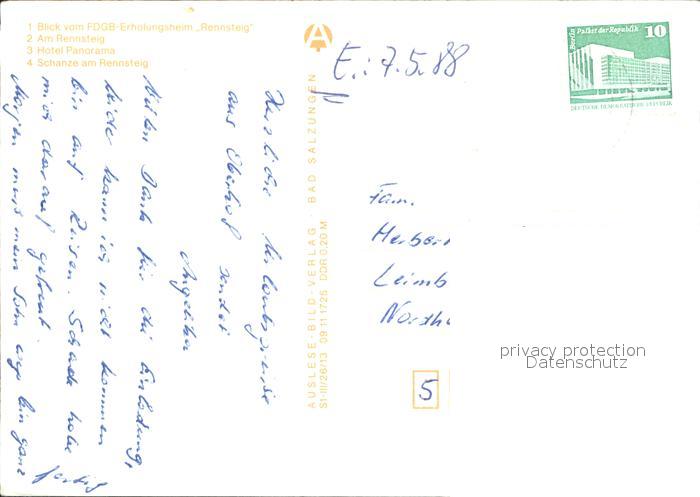 1 Blick vom FDGB-Erholungsheim „Rennsteig"
2 Am Rennsteig
3 Hotel Panorama
4 Schanze am Rennsteig
AUSLESE-BILD-VERLAG · BAD SALZUNGEN
S1-III/26/13 09 11 1725 DDR 0,20 M
E.: 7.5.88
Berlin Palast der Republik 10
DEUTSCHE DEMOKRATISCHE REPUBLIK
Herzliche Urlaubsgrüße
aus Oberhof sendet
Angelika
Vielen Dank für die Einladung,
leider kann ich nicht kommen
bin auf Reisen. Schade habe
mich darauf gefreut.
Morgen muß mein Sohn weg bin ganz
fertig
Fam.
Herber
Leimb
North
5
privacy protection
Datenschutz